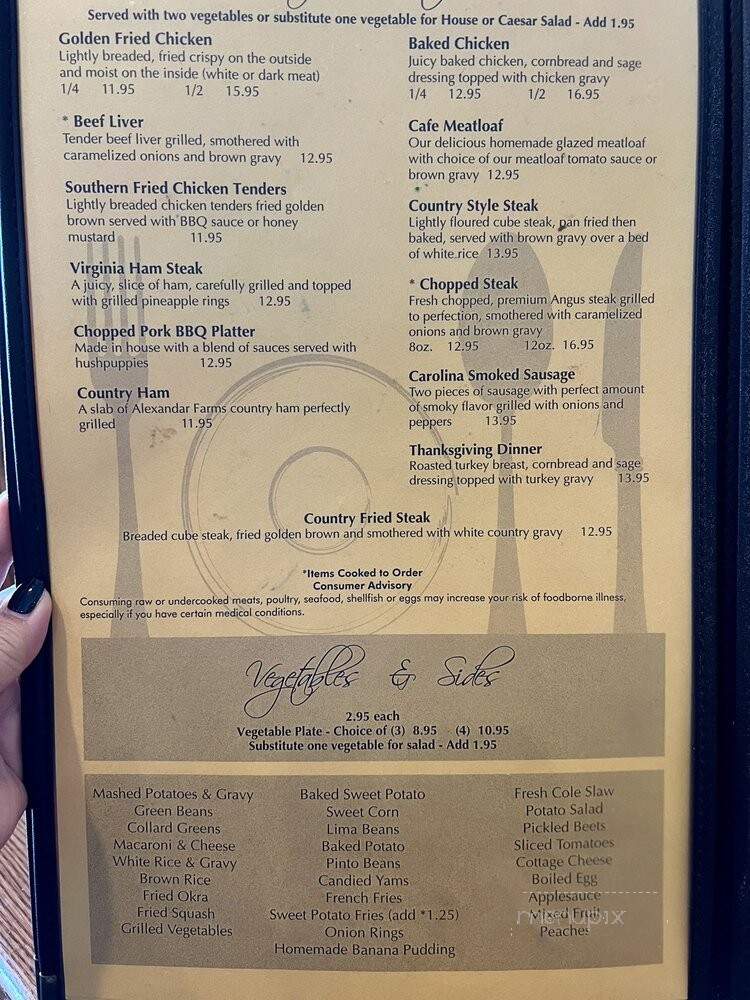 Served with two vegetables or substitute one vegetable for House or Caesar Salad - Add 1.95
Golden Fried Chicken
Lightly breaded, fried crispy on the outside
and moist on the inside (white or dark meat)
1/4 11.95 1/2 15.95
* Beef Liver
Tender beef liver grilled, smothered with
caramelized onions and brown gravy 12.95
Southern Fried Chicken Tenders
Lightly breaded chicken tenders fried golden
brown served with BBQ sauce or honey
mustard 11.95
Virginia Ham Steak
A juicy, slice of ham, carefully grilled and topped
with grilled pineapple rings 12.95
Chopped Pork BBQ Platter
Made in house with a blend of sauces served with
hushpuppies 12.95
Country Ham
A slab of Alexandar Farms country ham perfectly
grilled 11.95
Baked Chicken
Juicy baked chicken, cornbread and sage
dressing topped with chicken gravy
1/4 12.95 1/2 16.95
Cafe Meatloaf
Our delicious homemade glazed meatloaf
with choice of our meatloaf tomato sauce or
brown gravy 12.95
Country Style Steak
Lightly floured cube steak, pan fried then
baked, served with brown gravy over a bed
of white rice 13.95
* Chopped Steak
Fresh chopped, premium Angus steak grilled
to perfection, smothered with caramelized
onions and brown gravy
8oz. 12.95 12oz. 16.95
Carolina Smoked Sausage
Two pieces of sausage with perfect amount
of smoky flavor grilled with onions and
peppers 13.95
Thanksgiving Dinner
Roasted turkey breast, cornbread and sage
dressing topped with turkey gravy 13.95
Country Fried Steak
Breaded cube steak, fried golden brown and smothered with white country gravy 12.95
*Items Cooked to Order
Consumer Advisory
Consuming raw or undercooked meats, poultry, seafood, shellfish or eggs may increase your risk of foodborne illness,
especially if you have certain medical conditions.
Vegetables & Sides
2.95 each
Vegetable Plate - Choice of (3) 8.95 (4) 10.95
Substitute one vegetable for salad - Add 1.95
Mashed Potatoes & Gravy
Green Beans
Collard Greens
Macaroni & Cheese
White Rice & Gravy
Brown Rice
Fried Okra
Fried Squash
Grilled Vegetables
Baked Sweet Potato
Sweet Corn
Lima Beans
Baked Potato
Pinto Beans
Candied Yams
French Fries
Sweet Potato Fries (add *1.25)
Onion Rings
Homemade Banana Pudding
Fresh Cole Slaw
Potato Salad
Pickled Beets
Sliced Tomatoes
Cottage Cheese
Boiled Egg
Applesauce
Mixed Fruit
Peaches
menupix